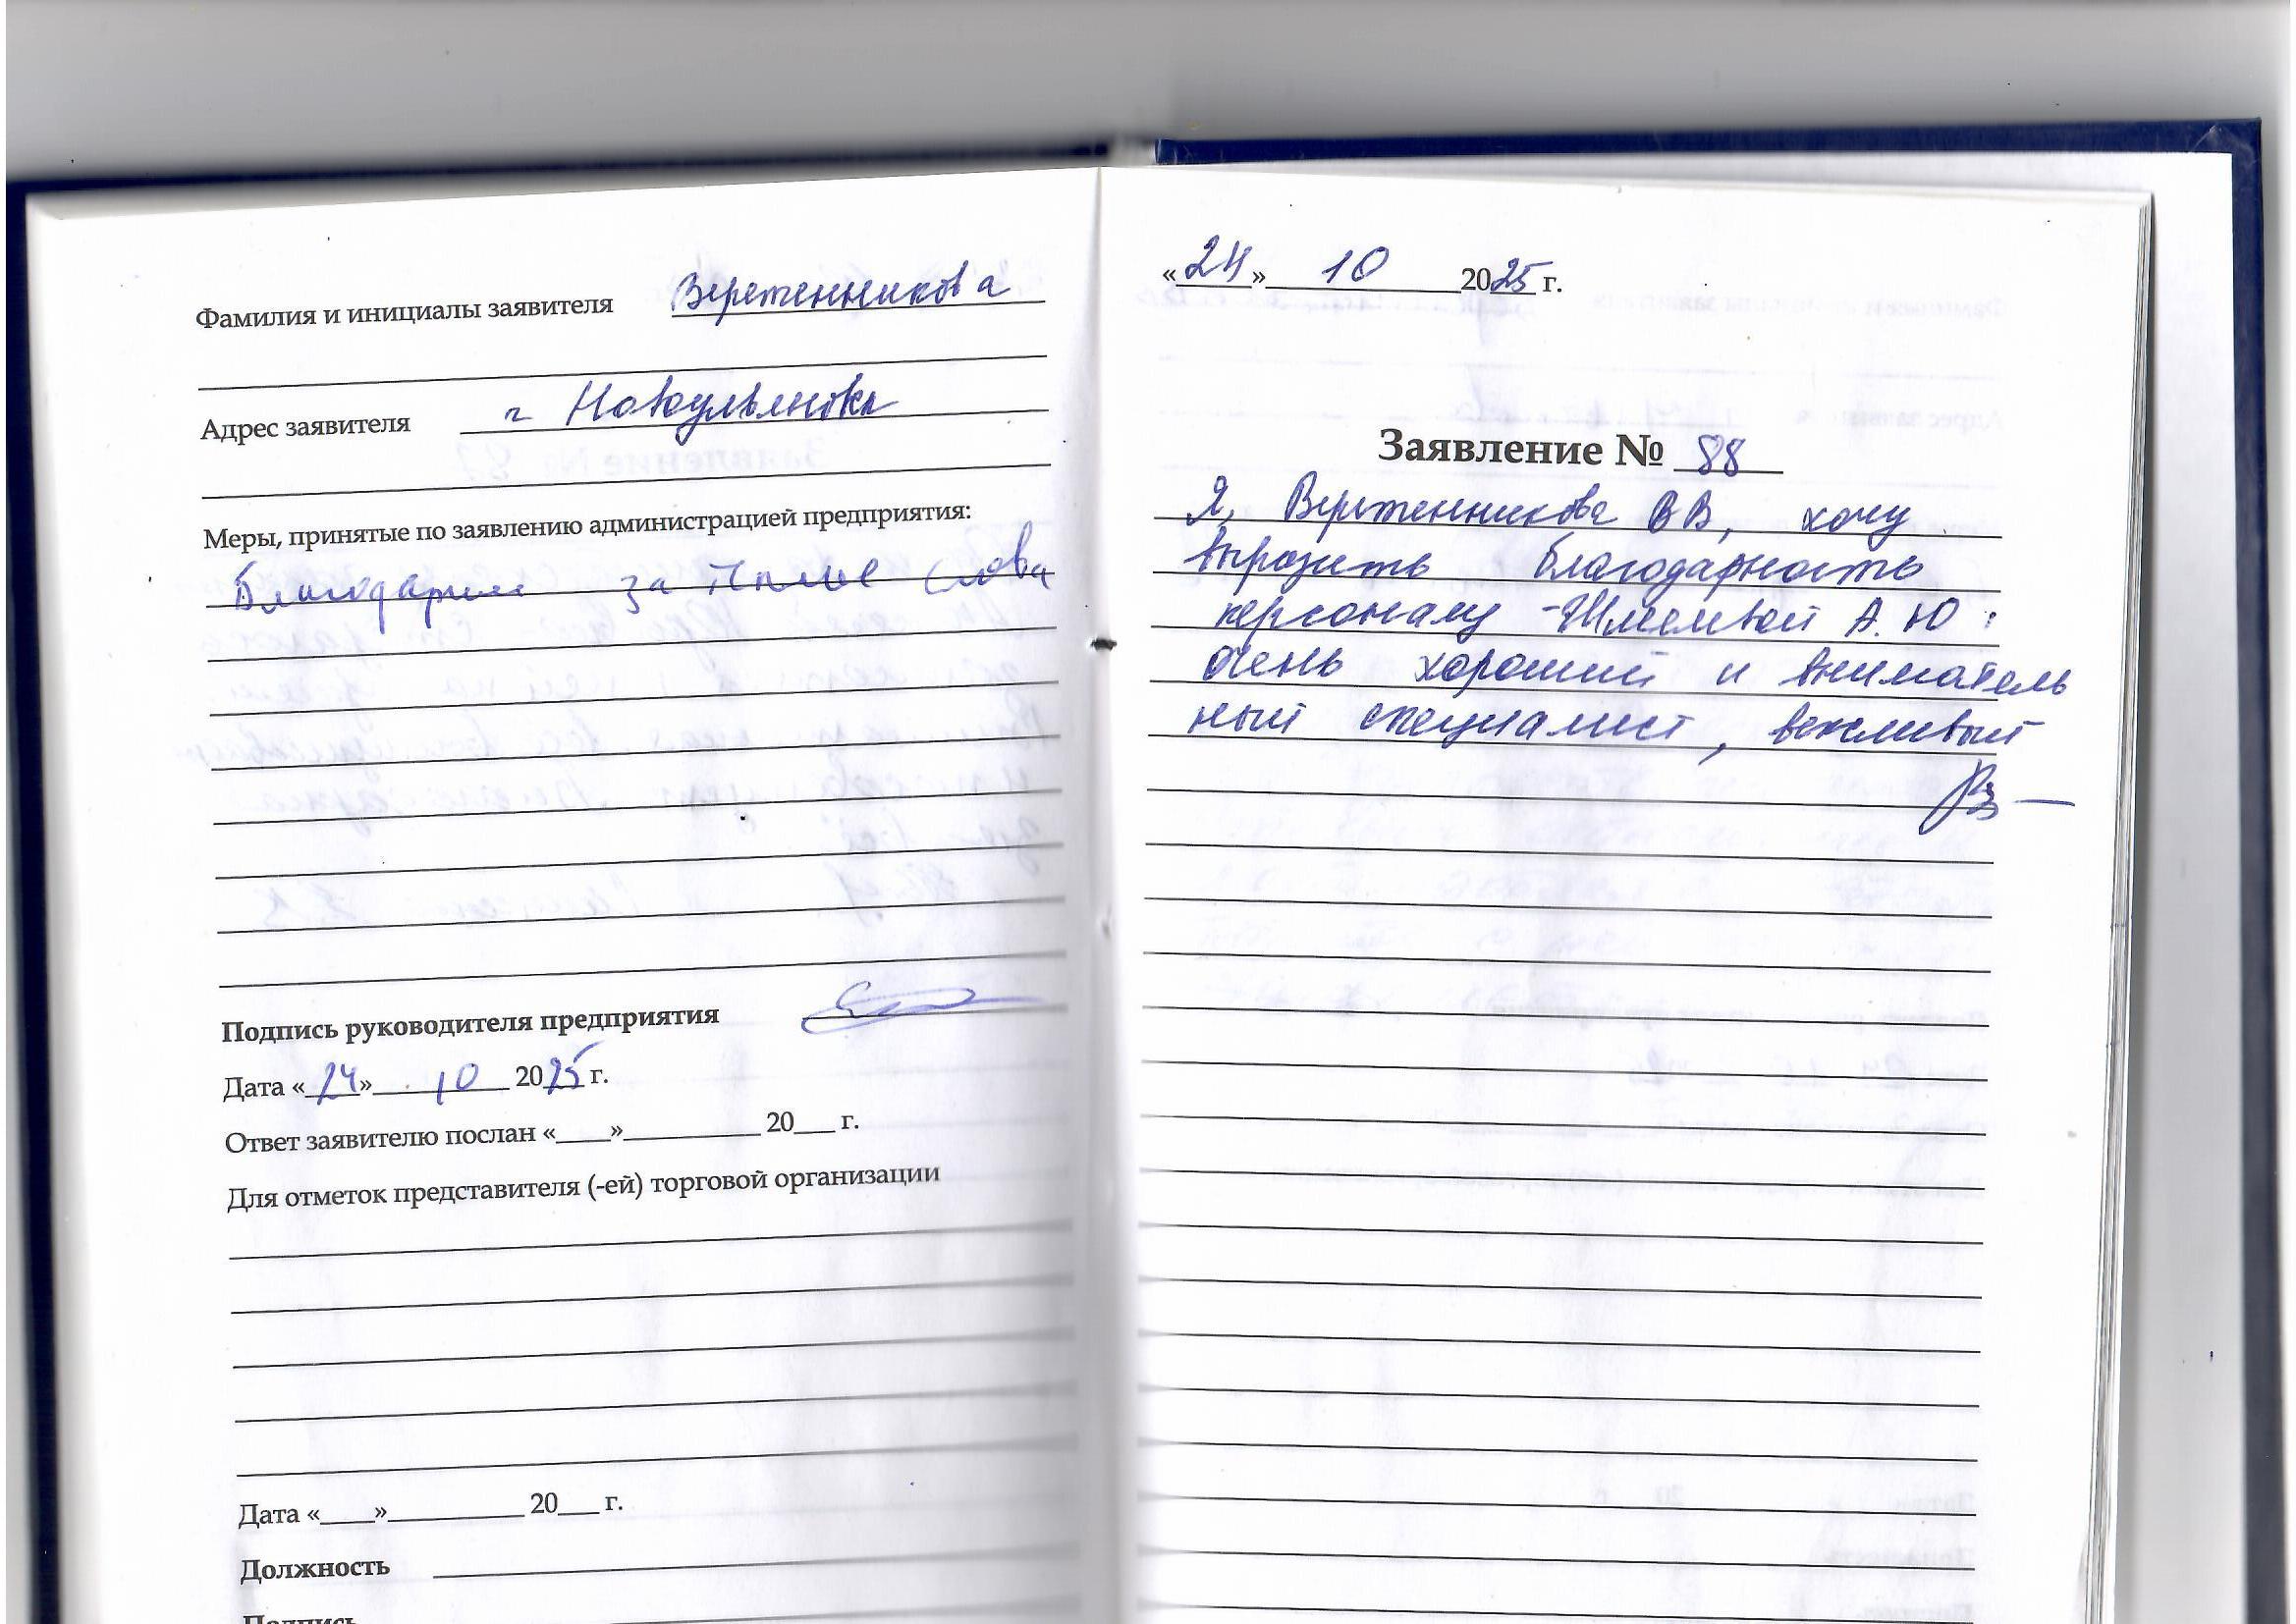 Фамилия и инициалы заявителя Веретенникова
Адрес заявителя г Новоульяновск
Меры, принятые по заявлению администрацией предприятия:
Благодарим за теплые слова
Подпись руководителя предприятия
Дата «24» 10 2025 г.
Ответ заявителю послан «____»__________ 20___ г.
Для отметок представителя (-ей) торговой организации
Дата «____»__________ 20___ г.
Должность
Подпись
«24» 10 2025 г.
Заявление № 88
Я, Веретенникова ВВ, хочу
выразить благодарность
персоналу - А. Ю :
очень хороший и вниматель
ный специалист, вежливый